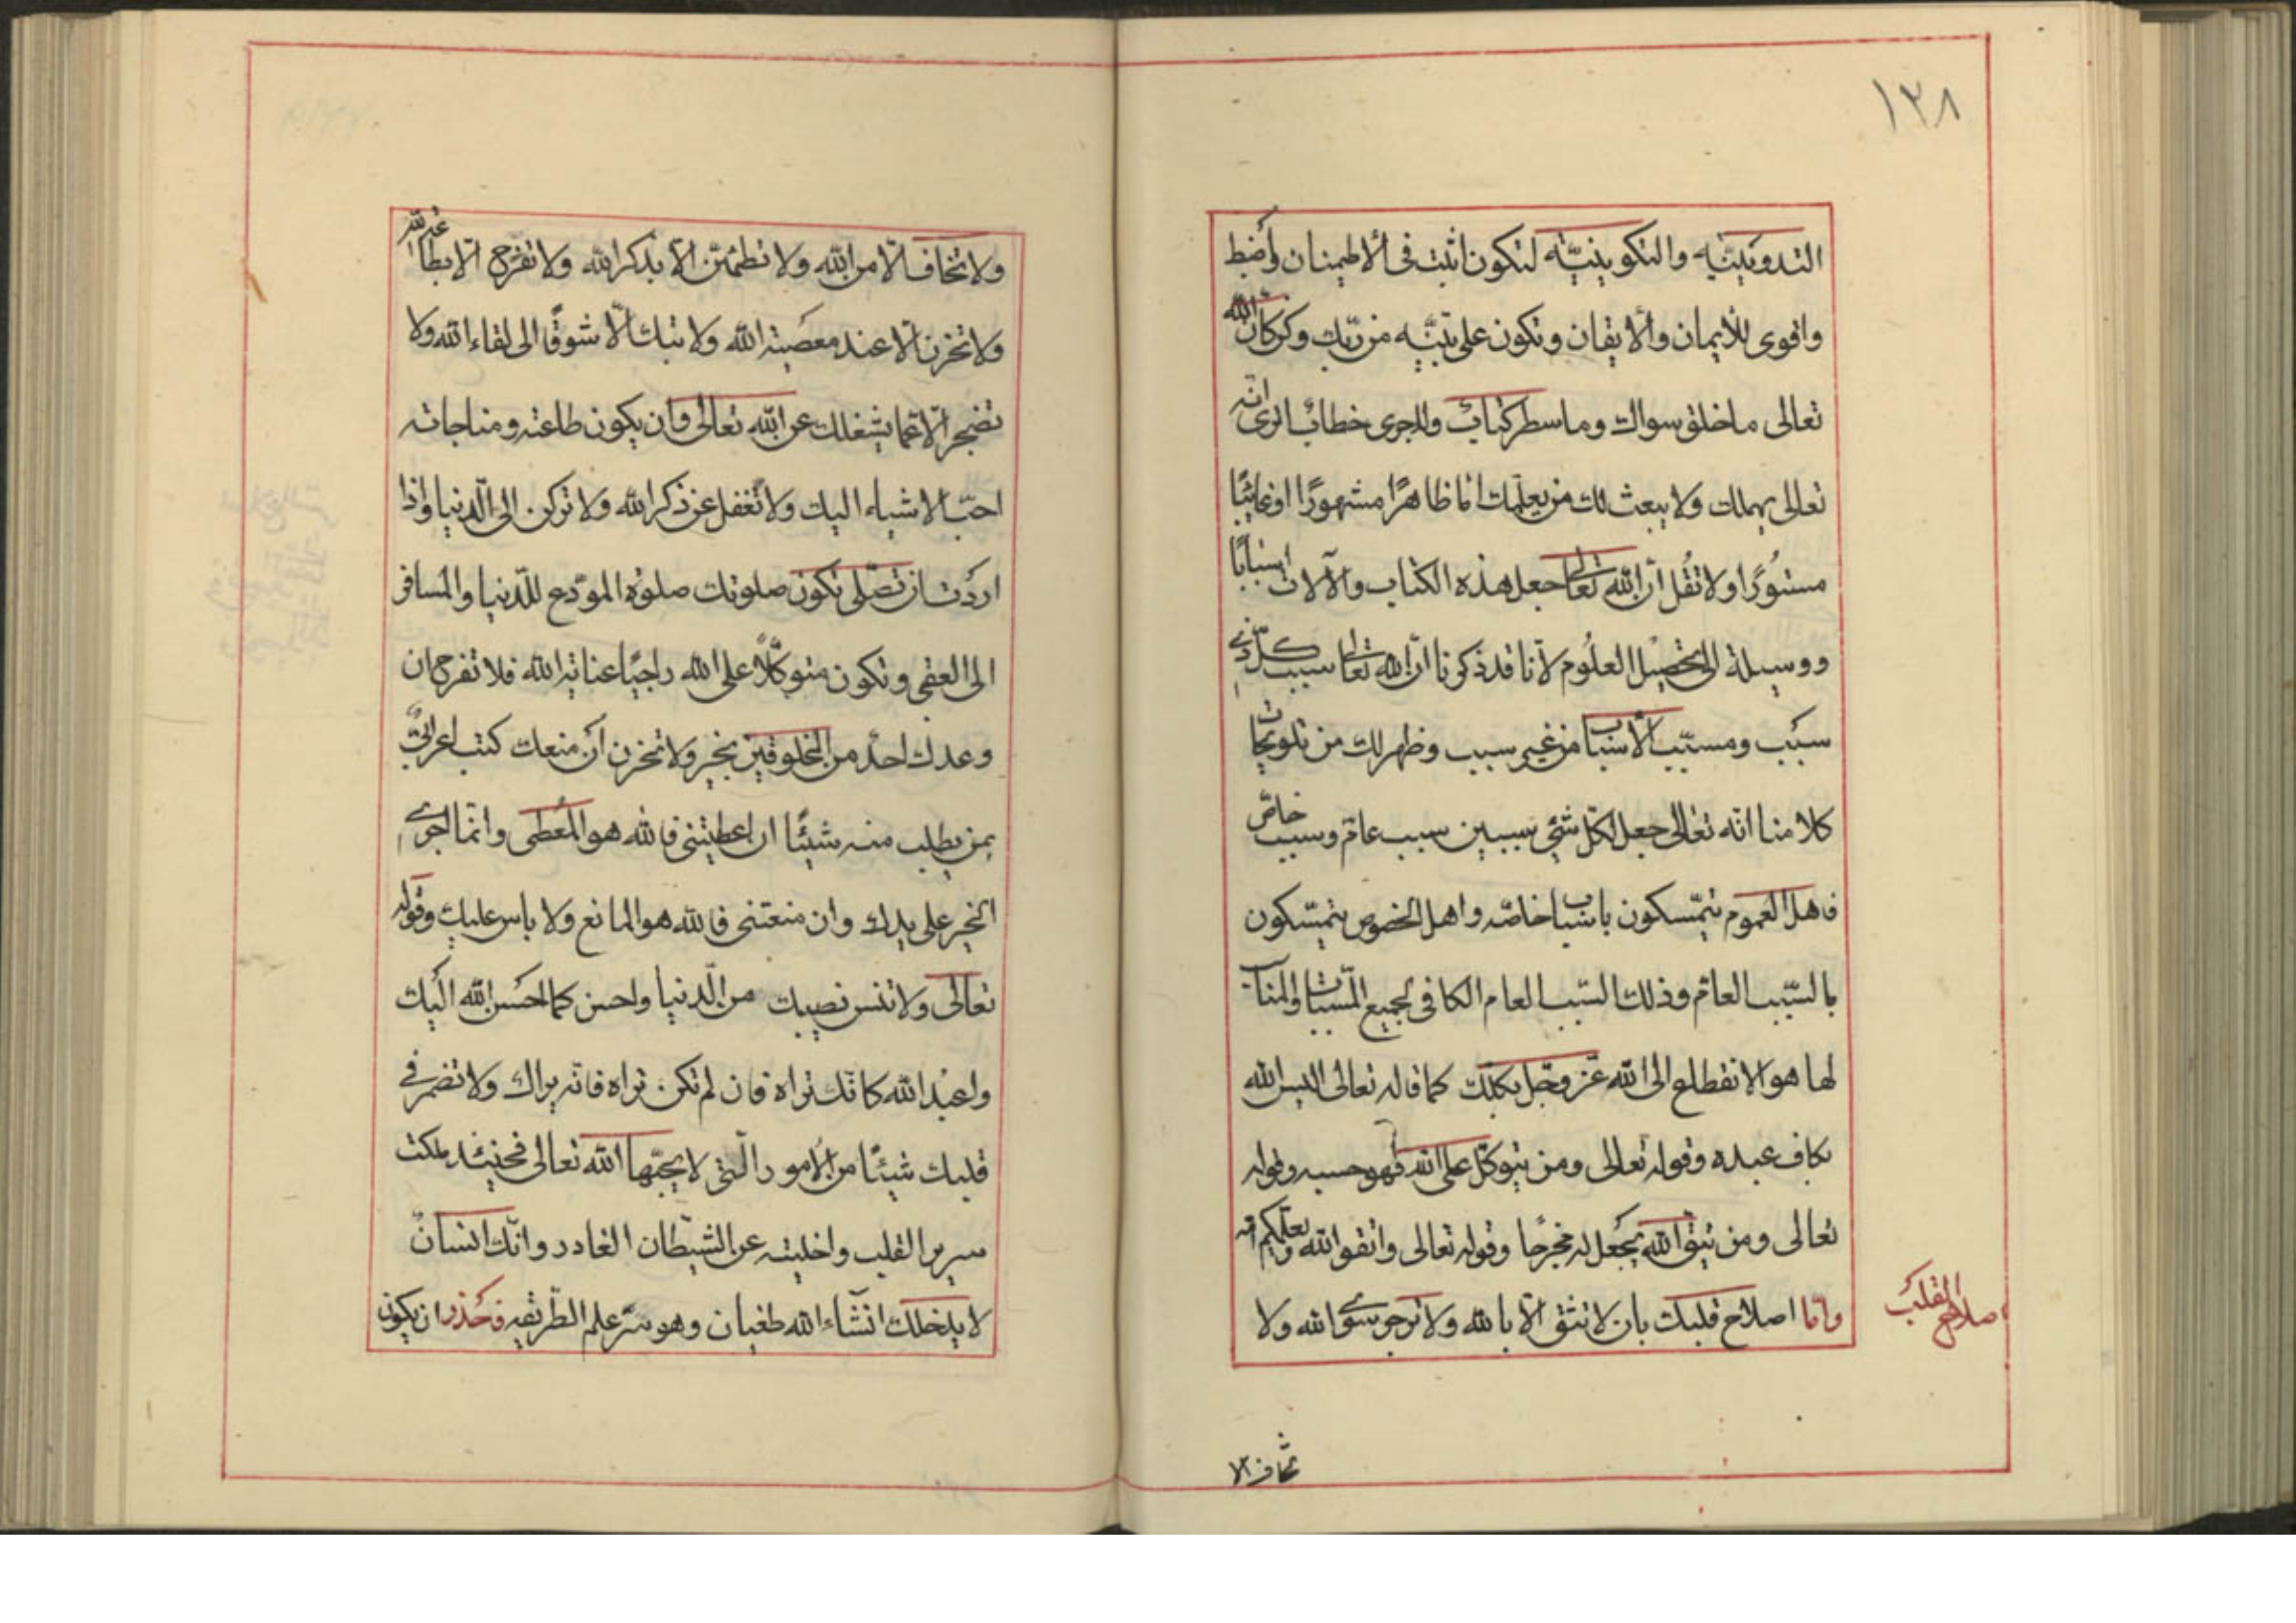 ١٣٨
التدوينيّه والتكوينيّه لتكون اثبت فى الاطمينان واضبط
واقوى للايمان والايقان وتكون على بيّنه من ربّك وكن كانّ الله
تعالى ماخلق سواك وما سطر كتاب ولا جرى خطاب اترى انّه
تعالى يهملك ولا يبعث لك من يعلّمك امّا ظاهرًا مشهورًا او غائبًا
مستورًا ولا تقل انّ الله تعالى جعل هذه الكتاب والآلات اسبابًا
ووسيلة الى تحصيل العلوم لانّا قد ذكرنا انّ الله تعالى سبب كلّ ذى
سبب ومسبّب الاسباب من غير سبب وظهر لك من تلويحات
كلامنا انّه تعالى جعل لكلّ شئ سببين سبب عامّ وسبب خاصّ
فاهل العموم يتمسّكون باسباب خاصّه واهل الخصوص يتمسّكون
بالسّبب العامّ وذلك السّبب العام الكافى لجميع المسبّبات
لها هو الانقطاع الى الله عزّ وجلّ بكلّك كما قال تعالى اليس الله
بكاف عبده وقوله تعالى ومن يتوكّل على الله فهو حسبه وقوله
تعالى ومن يتق الله يجعل له مخرجًا وقوله تعالى واتقوا الله ويعلّمكم الله
وامّا اصلاح قلبك بان لا تثق الّا بالله ولا ترجو سوى الله ولا
اصلاح القلب
تخاف الّا
ولا تخاف الّا من الله ولا تطمئنّ الّا بذكر الله ولا تفرح الّا بطاعة الله
ولا تحزن الّا عند معصية الله ولا تبك الّا شوقًا الى لقاء الله ولا
تضجر الّا عمّا يشغلك عن الله تعالى وان يكون طاعته ومناجاته
احبّ الاشياء اليك ولا تغفل عن ذكر الله ولا تركن الى الدّنيا واذا
اردت ان تصلّى تكون صلوتك صلوة المودّع للدّنيا والمسافر
الى العقبى وتكون متوكّلًا على الله راجيًا عناية الله فلا تفرح ان
وعدك احد من المخلوقين بخير ولا تحزن ان منعك كتب اعرابىّ
بمن يطلب منه شيئًا ان اعطيتنى فالله هو المعطى وانّما اجرى
الخير على يدك وان منعتنى فالله هو المانع ولا باس عليك وقوله
تعالى ولا تنس نصيبك من الدّنيا واحسن كما احسن الله اليك
واعبد الله كانّك تراه فان لم تكن تراه فانّه يراك ولا تضمر فى
قلبك شيئًا من الامور الّتى لا يحبّها الله تعالى فحينئذ ملكت
سرير القلب واخليته عن الشّيطان الغادر وانّك انسانٌ
لا يدخلك انشاء الله طغيان وهو سرّ علم الطّريقه فحذر ان يكون